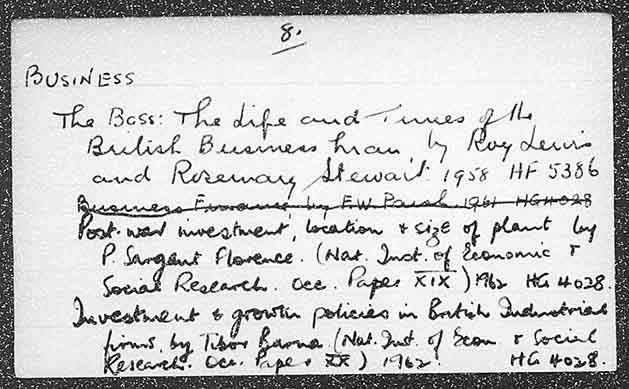 8.
BUSINESS
The Boss: The Life and Times of the
British Business Man, by Roy Lewis
and Rosemary Stewart. 1958 HF 5386
Business Finance, by F.W. Paish. 1961 HG 4028
Post-war investment, location & size of plant by
P. Sargant Florence. (Nat. Inst. of Economic &
Social Research. Occ. Paper XIX) 1962 HG 4028.
Investment & growth policies in British Industrial
firms, by Tibor Barna. (Nat. Inst. of Econ & Social
Research. Occ. Paper XX) 1962. HG 4028.